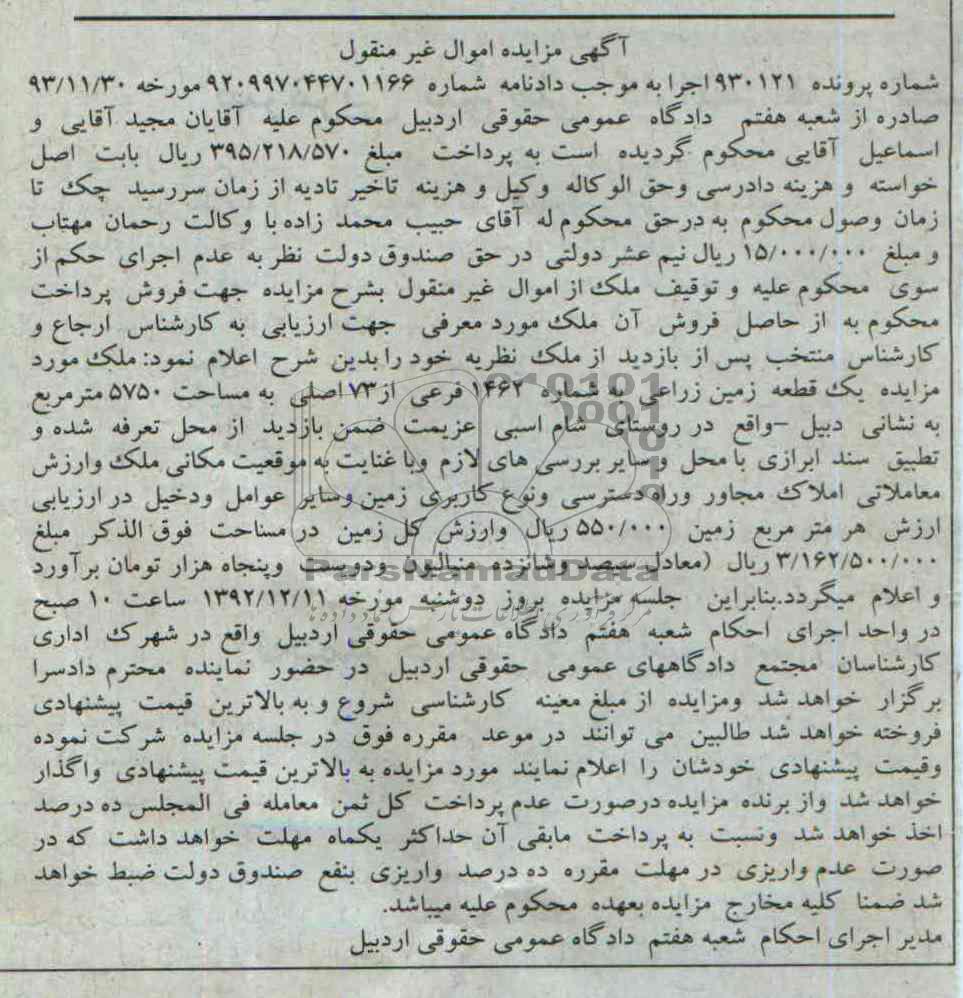 آگهی مزایده اموال غیر منقول
شماره پرونده ۹۳۰۱۲۱ اجرا به موجب دادنامه شماره ۹۲۰۹۹۷۰۴۴۷۰۱۱۶۶ مورخه ۹۳/۱۱/۳۰
صادره از شعبه هفتم دادگاه عمومی حقوقی اردبیل محکوم علیه آقایان مجید آقایی و
اسماعیل آقایی محکوم گردیده است به پرداخت مبلغ ۳۹۵/۲۱۸/۵۷۰ ریال بابت اصل
خواسته و هزینه دادرسی وحق الوکاله وکیل و هزینه تاخیر تادیه از زمان سررسید چک تا
زمان وصول محکوم به درحق محکوم له آقای حبیب محمد زاده با وکالت رحمان مهتاب
و مبلغ ۱۵/۰۰۰/۰۰۰ ریال نیم عشر دولتی در حق صندوق دولت نظر به عدم اجرای حکم از
سوی محکوم علیه و توقیف ملک از اموال غیر منقول بشرح مزایده جهت فروش پرداخت
محکوم به از حاصل فروش آن ملک مورد معرفی جهت ارزیابی به کارشناس ارجاع و
کارشناس منتخب پس از بازدید از ملک نظریه خود را بدین شرح اعلام نمود: ملک مورد
مزایده یک قطعه زمین زراعی به شماره ۱۴۶۲ فرعی از ۷۳ اصلی به مساحت ۵۷۵۰ مترمربع
به نشانی دبیل –واقع در روستای شام اسبی عزیمت ضمن بازدید از محل تعرفه شده و
تطبیق سند ابرازی با محل و سایر بررسی های لازم وبا غنایت به موقعیت مکانی ملک وارزش
معاملاتی املاک مجاور وراه دسترسی ونوع کاربری زمین وسایر عوامل ودخیل در ارزیابی
ارزش هر متر مربع زمین ۵۵۰/۰۰۰ ریال وارزش کل زمین در مساحت فوق الذکر مبلغ
۳/۱۶۲/۵۰۰/۰۰۰ ریال (معادل سیصد وشانزده میلیون ودویست وپنجاه هزار تومان برآورد
و اعلام میگردد.بنابراین جلسه مزایده بروز دوشنبه مورخه ۱۳۹۲/۱۲/۱۱ ساعت ۱۰ صبح
در واحد اجرای احکام شعبه هفتم دادگاه عمومی حقوقی اردبیل واقع در شهرک اداری
کارشناسان مجتمع دادگاههای عمومی حقوقی اردبیل در حضور نماینده محترم دادسرا
برگزار خواهد شد ومزایده از مبلغ معینه کارشناسی شروع و به بالاترین قیمت پیشنهادی
فروخته خواهد شد طالبین می توانند در موعد مقرره فوق در جلسه مزایده شرکت نموده
وقیمت پیشنهادی خودشان را اعلام نمایند مورد مزایده به بالاترین قیمت پیشنهادی واگذار
خواهد شد واز برنده مزایده درصورت عدم پرداخت کل ثمن معامله فی المجلس ده درصد
اخذ خواهد شد ونسبت به پرداخت مابقی آن حداکثر یکماه مهلت خواهد داشت که در
صورت عدم واریزی در مهلت مقرره ده درصد واریزی بنفع صندوق دولت ضبط خواهد
شد ضمنا کلیه مخارج مزایده بعهده محکوم علیه میباشد.
مدیر اجرای احکام شعبه هفتم دادگاه عمومی حقوقی اردبیل
ParsNamadData